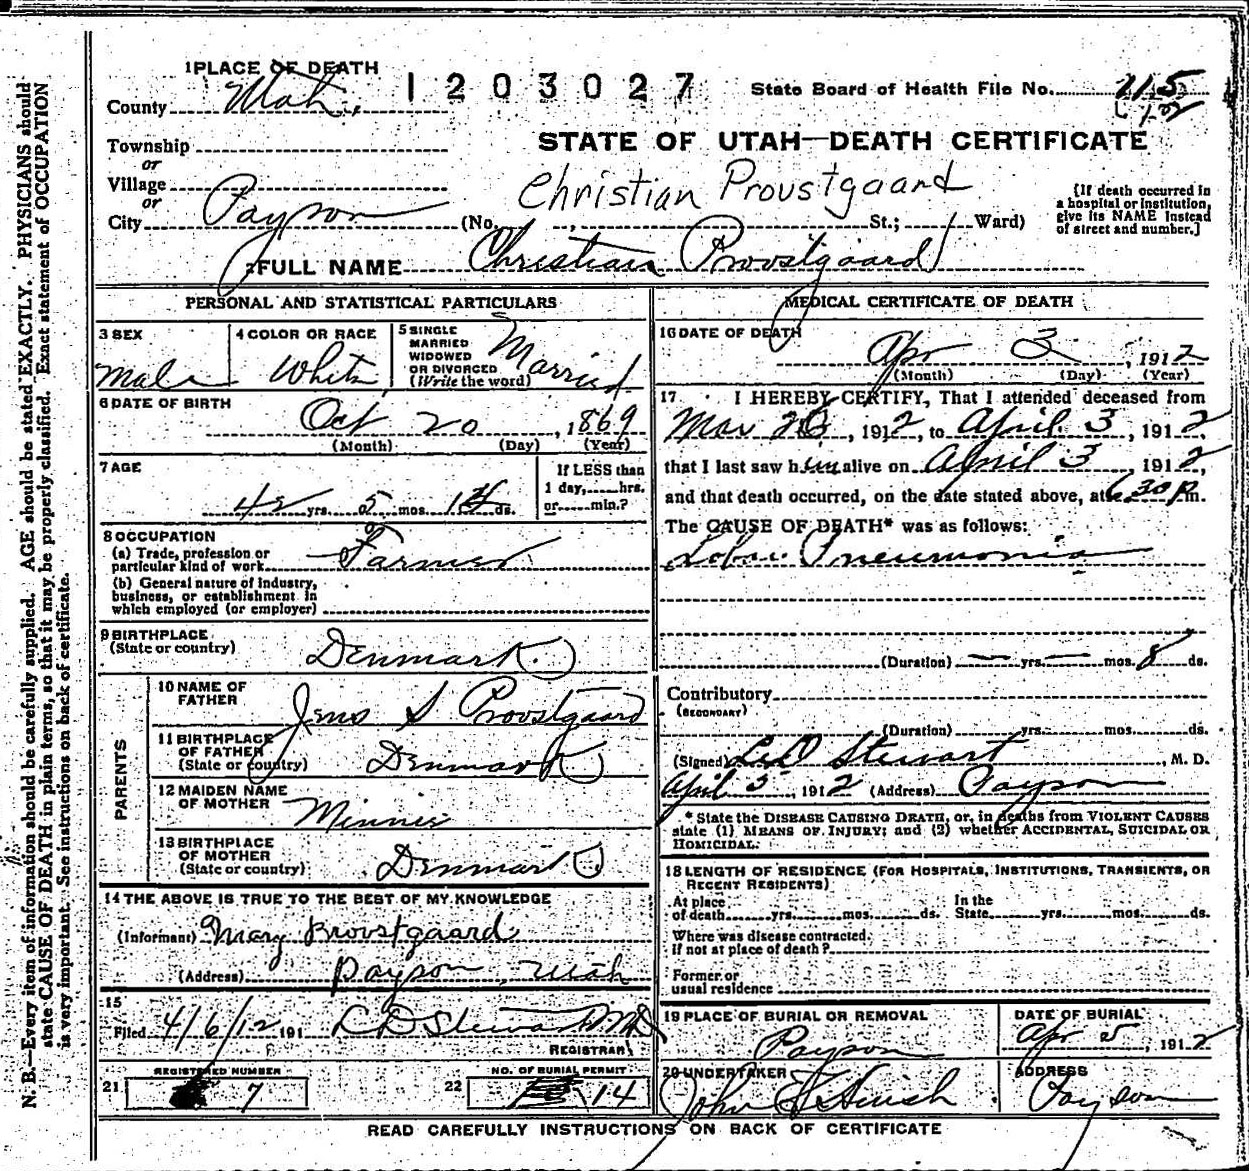 1 PLACE OF DEATH
1203027
State Board of Health File No. 115
County Utah,
Township
STATE OF UTAH—DEATH CERTIFICATE
or
Village
or
City Payson
Christian Provstgaard
(No. , St.; Ward)
[If death occurred in
a hospital or institution,
give its NAME instead
of street and number.]
2 FULL NAME Christian Provstgaard
PERSONAL AND STATISTICAL PARTICULARS
3 SEX
Male
4 COLOR OR RACE
White
5 SINGLE
MARRIED
WIDOWED
OR DIVORCED
(Write the word)
Married
6 DATE OF BIRTH
Oct 20, 1869
(Month) (Day) (Year)
7 AGE
42 yrs. 5 mos. ds.
If LESS than
1 day, hrs.
or min.?
8 OCCUPATION
(a) Trade, profession or
particular kind of work Farmer
(b) General nature of industry,
business, or establishment in
which employed (or employer)
9 BIRTHPLACE
(State or country)
Denmark
PARENTS
10 NAME OF
FATHER
Jens S Provstgaard
11 BIRTHPLACE
OF FATHER
(State or country)
Denmark
12 MAIDEN NAME
OF MOTHER
Minnie
13 BIRTHPLACE
OF MOTHER
(State or country)
Denmark
14 THE ABOVE IS TRUE TO THE BEST OF MY KNOWLEDGE
(Informant) Mary Provstgaard
(Address) Payson, Utah
15
Filed 4/6/12 191
REGISTRAR
21
REGISTERED NUMBER
7
22
NO. OF BURIAL PERMIT
14
MEDICAL CERTIFICATE OF DEATH
16 DATE OF DEATH
Apr 3, 1912
(Month) (Day) (Year)
17 I HEREBY CERTIFY, That I attended deceased from
Mar 26, 1912, to April 3, 1912,
that I last saw him alive on April 3, 1912,
and that death occurred, on the date stated above, at 6 30 p.m.
The CAUSE OF DEATH* was as follows:
Lobar Pneumonia
(Duration) — yrs. — mos. 8 ds.
Contributory
(SECONDARY)
(Duration) yrs. mos. ds.
(Signed) Stewart, M. D.
April 5, 1912 (Address) Payson
* State the DISEASE CAUSING DEATH, or, in deaths from VIOLENT CAUSES
state (1) MEANS OF INJURY; and (2) whether ACCIDENTAL, SUICIDAL OR
HOMICIDAL.
18 LENGTH OF RESIDENCE (FOR HOSPITALS, INSTITUTIONS, TRANSIENTS, OR
RECENT RESIDENTS)
At place
of death yrs. mos. ds.
In the
State yrs. mos. ds.
Where was disease contracted,
If not at place of death?
Former or
usual residence
19 PLACE OF BURIAL OR REMOVAL
Payson
DATE OF BURIAL
Apr 5, 1912
20 UNDERTAKER
John
ADDRESS
Payson
READ CAREFULLY INSTRUCTIONS ON BACK OF CERTIFICATE
N. B.—Every item of information should be carefully supplied. AGE should be stated EXACTLY. PHYSICIANS should
state CAUSE OF DEATH in plain terms, so that it may be properly classified. Exact statement of OCCUPATION
is very important. See instructions on back of certificate.